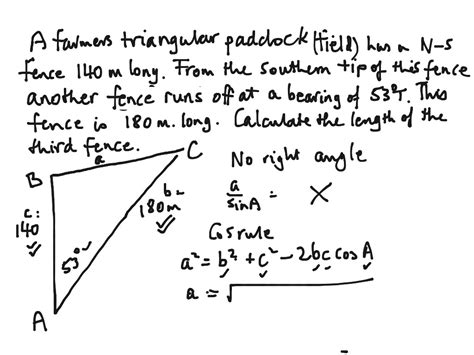 A farmers triangular paddock (field) has a N-S
fence 140 m long. From the southern tip of this fence
another fence runs off at a bearing of 53°T. This
fence is 180 m. long. Calculate the length of the
third fence.
a
C
B
No right angle
c:
140
b=
180m
a/sinA = X
53°
Cos rule
a² = b² + c² - 2bc cos A
a = √
A